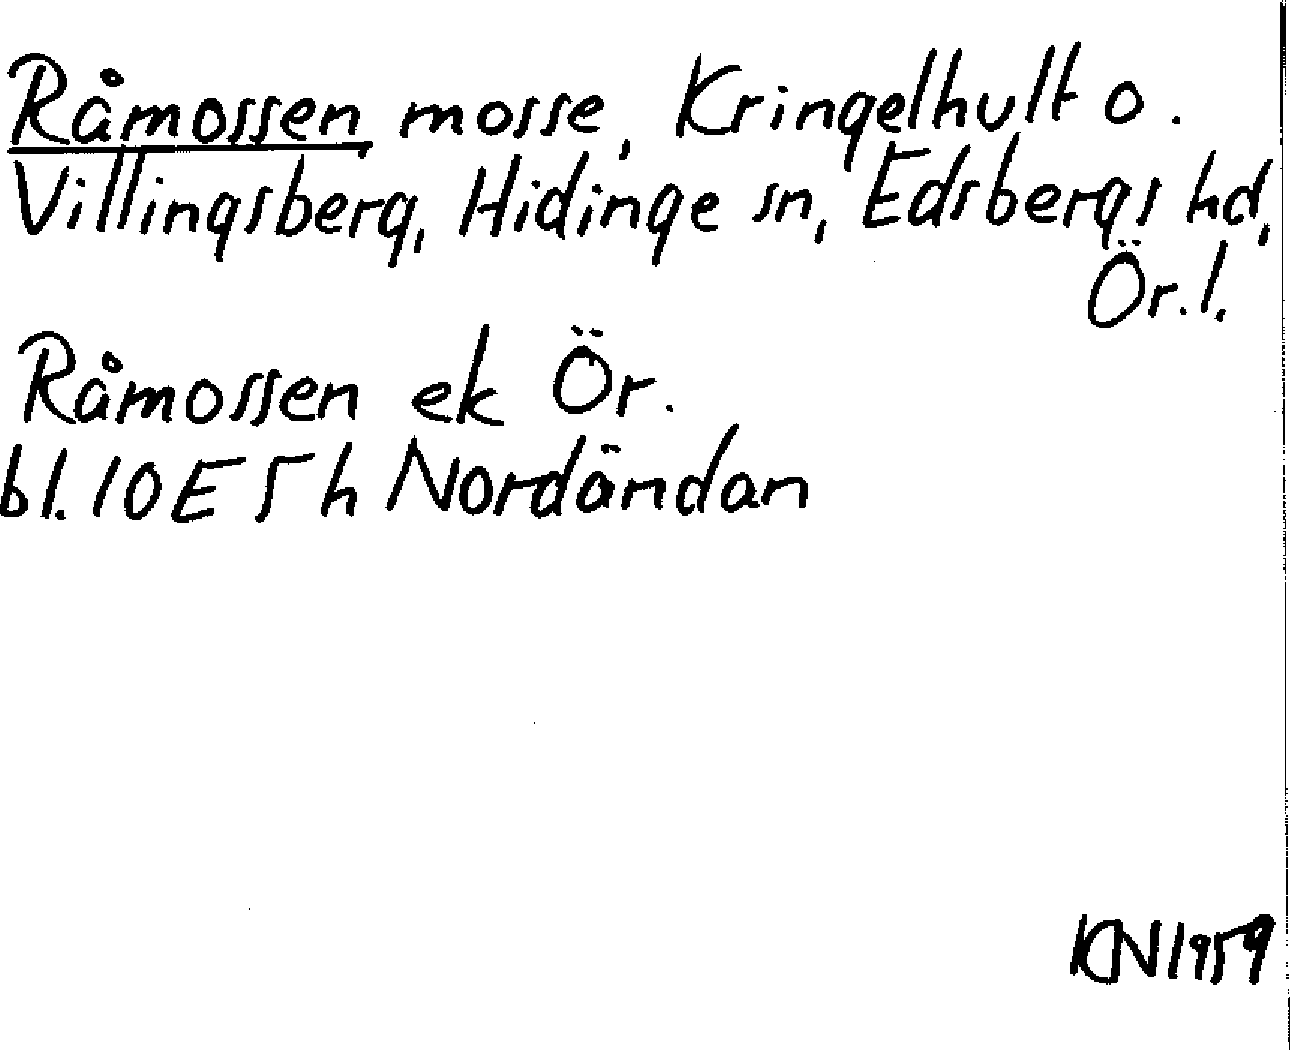 Råmossen mosse, Kringelhult o.
Villingsberg, Hidinge sn, Edsbergs hd,
Ör. l.
Råmossen ek Ör.
bl. 10E 5h Nordändan
KN 1959